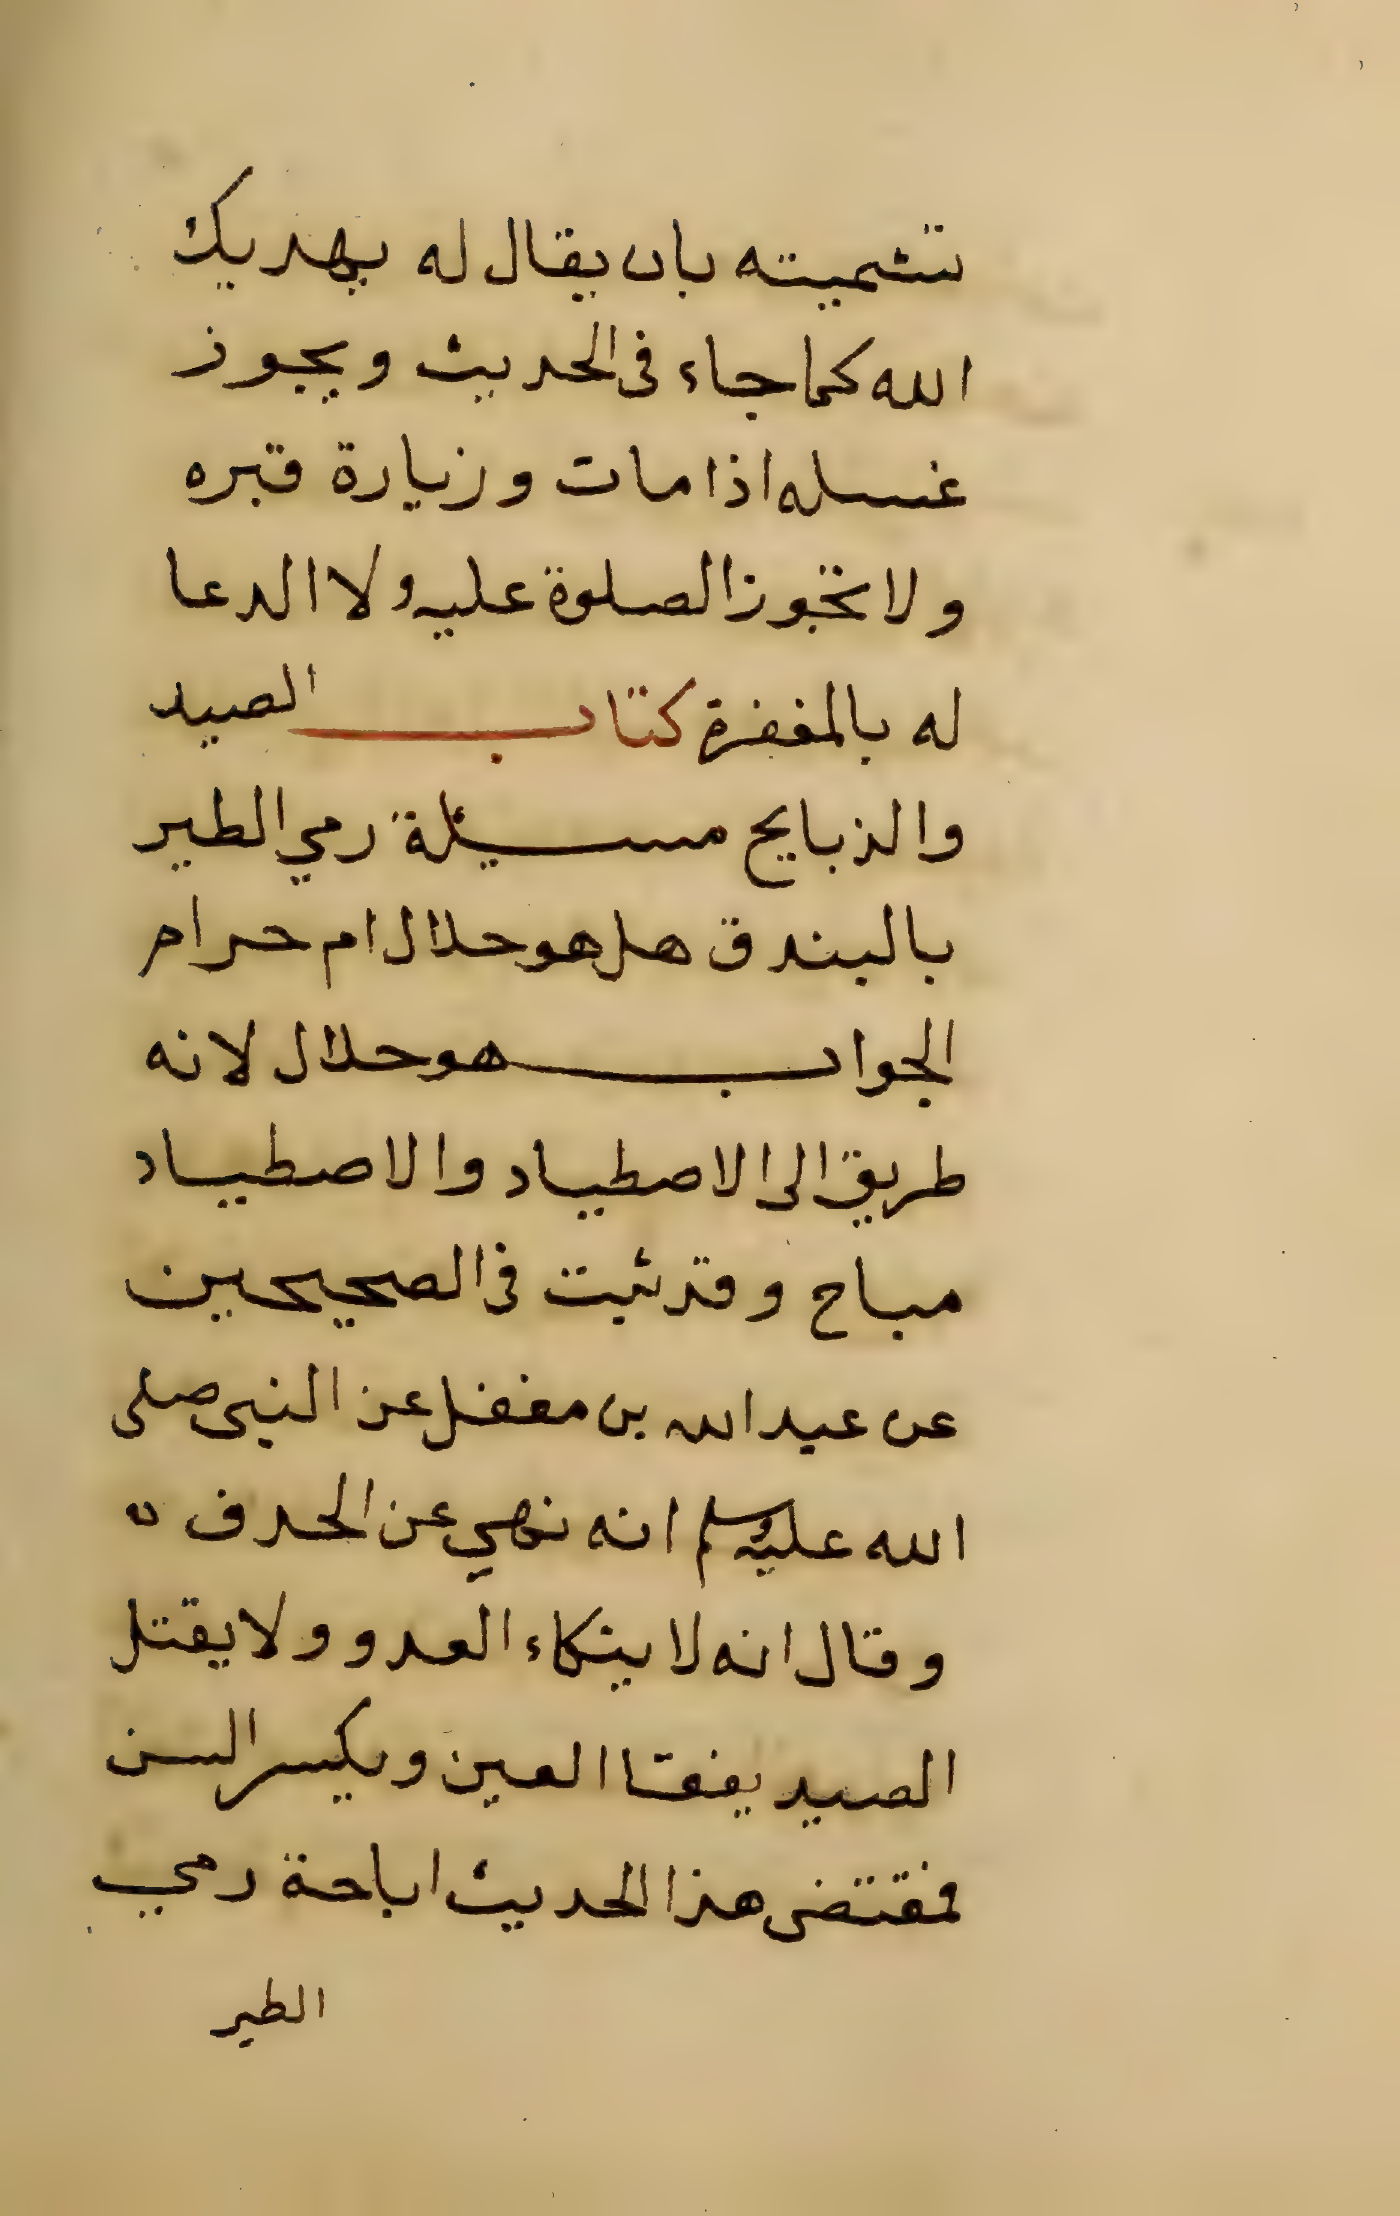 تشميته بان يقال له يهديك
الله كما جاء فى الحديث ويجوز
غسله اذا مات وزيارة قبره
ولا تجوز الصلوة عليه ولا الدعا
له بالمغفرة كتاب الصيد
والذبايح مسيئلة رمي الطير
بالبندق هل هو حلال ام حرام
الجواب هو حلال لانه
طريق الى الاصطياد والاصطياد
مباح وقد ثبت فى الصحيحين
عن عبد الله بن مغفل عن النبى صلى
الله عليه وسلم انه نهي عن الحدف
وقال انه لا ينكاء العدو ولا يقتل
الصيد يفقا العين ويكسر السن
فمقتضى هذا الحديث اباحة رمي
الطير